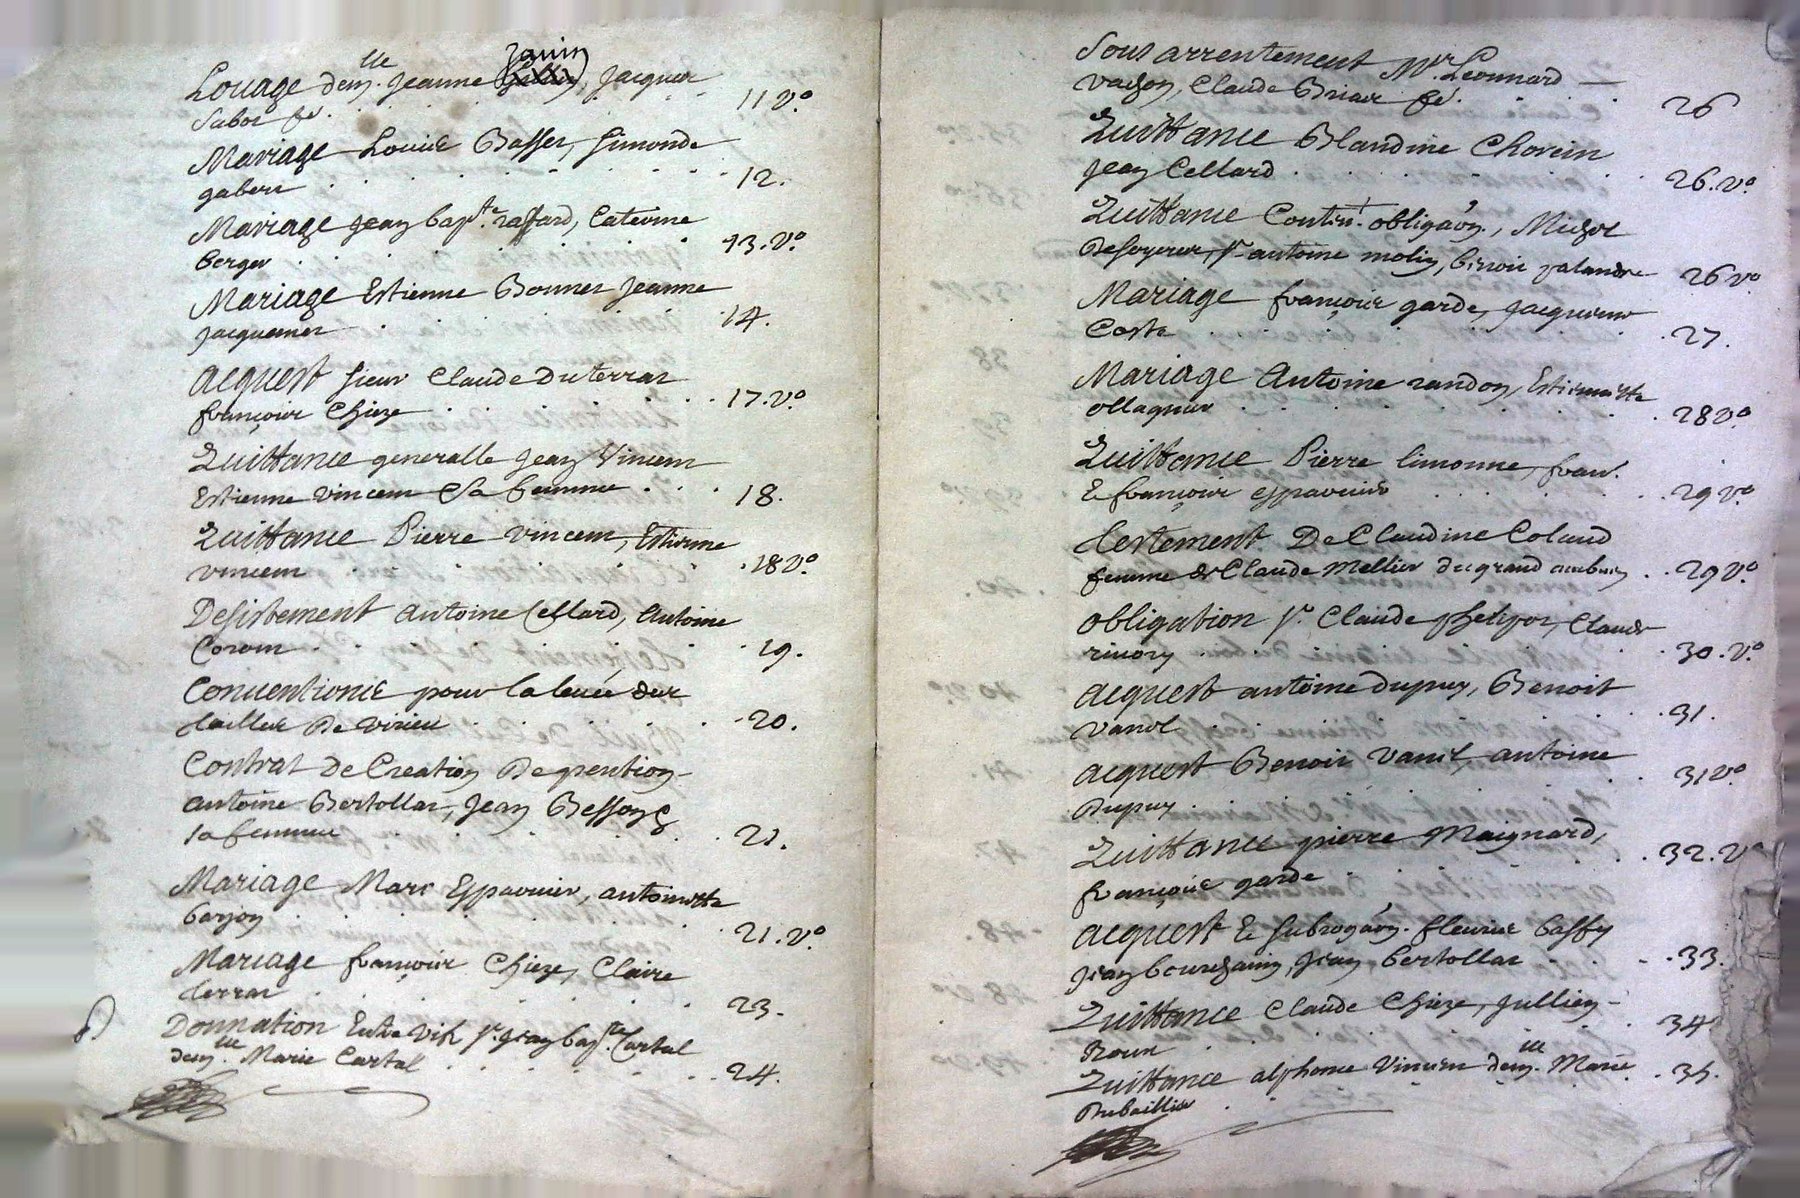 Louage dem.lle Jeanne Janin, Jacques
Sabot fé. 11 v.o
Mariage Louise Basset, Simonde
gabert 12.
Mariage Jean bap.te raffard, Caterine
berger 13. v.o
Mariage Estienne Bonnet Jeanne
Jacquemet 14.
acquest sieur Claude Duterrat
françois Chieze 17. v.o
Quittance generalle Jean Vincent
Estienne vincent & sa femme 18.
Quittance Pierre vincent, Estienne
vincent 18 v.o
Desistement antoine Cellard, antoine
Coront 19.
Conventionis pour la levée des
tailles De virieu 20.
Contrat de Creation De pention
antoine Bertollat, Jean Besson &
sa femme 21.
Mariage Marc Esparvier, antoinette
barjon 21. v.o
Mariage françois Chieze, Claire
terrat 23.
Donnation Entre vifs s.r Jean bap.te Cartal
dem.lle Marie Cartal 24.
Sous arrentement M.r Leonnard
vachon, Claude Briat fé. 26
Quittance Blandine Chorein
Jean Cellard 26. v.o
Quittance Conten.t obligaôn, Michel
Desoyeux, s.r antoine molin, benoit palandre 26 v.o
Mariage françois garde, Jacquemet
Coste 27.
Mariage antoine randon, Estiennette
ollagnier 28 v.o
Quittance Pierre limonne, fran.
& françois Esparvier 29 v.o
testement De Claudine Coland
femme de Claude Mellier du grand 29 v.o
obligation s.r Claude phelipot, Claude
rivory 30. v.o
acquest antoine Dupuy, Benoit
vanel 31.
acquest Benoit vanel, antoine
Dupuy 31 v.o
Quittance pierre Maignard,
françois garde 32. v
acquest & subrogaôn. fleurie basset
Jean bourchanin, Jean bertollat 33.
Quittance Claude Chieze, Jullien
Roux 34
Quittance alphonce Vincent dem.lle Marie
Dubaillier 35.